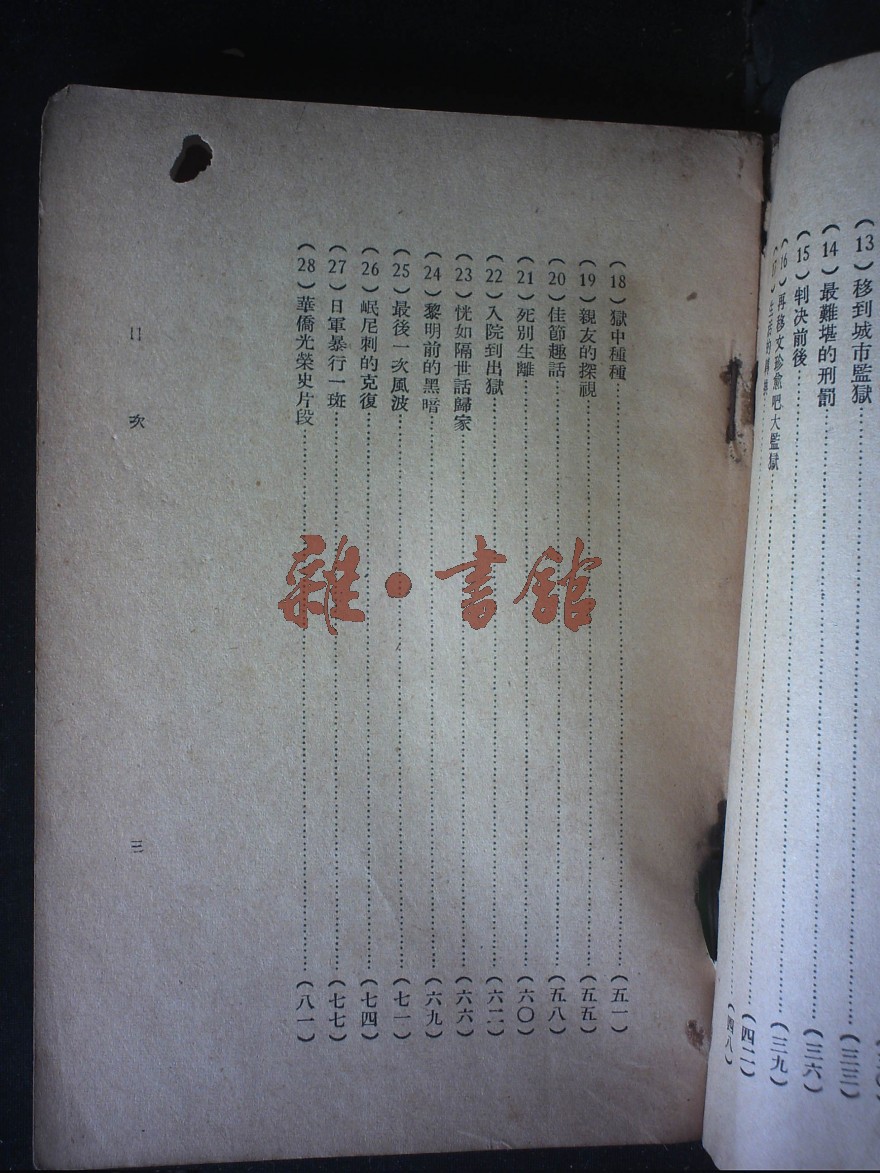 (13)移到城市監獄……(三三)
(14)最難堪的刑罰……(三六)
(15)判決前後……(三九)
(16)再移文珍愈吧大監獄……(四二)
(四八)
(18)獄中種種……(五一)
(19)親友的探視……(五五)
(20)佳節趣話……(五八)
(21)死別生離……(六〇)
(22)入院到出獄……(六二)
(23)恍如隔世話歸家……(六六)
(24)黎明前的黑暗……(六九)
(25)最後一次風波……(七一)
(26)岷尼刺的克復……(七四)
(27)日軍暴行一斑……(七七)
(28)華僑光榮史片段……(八一)
目次
三
雜·書館